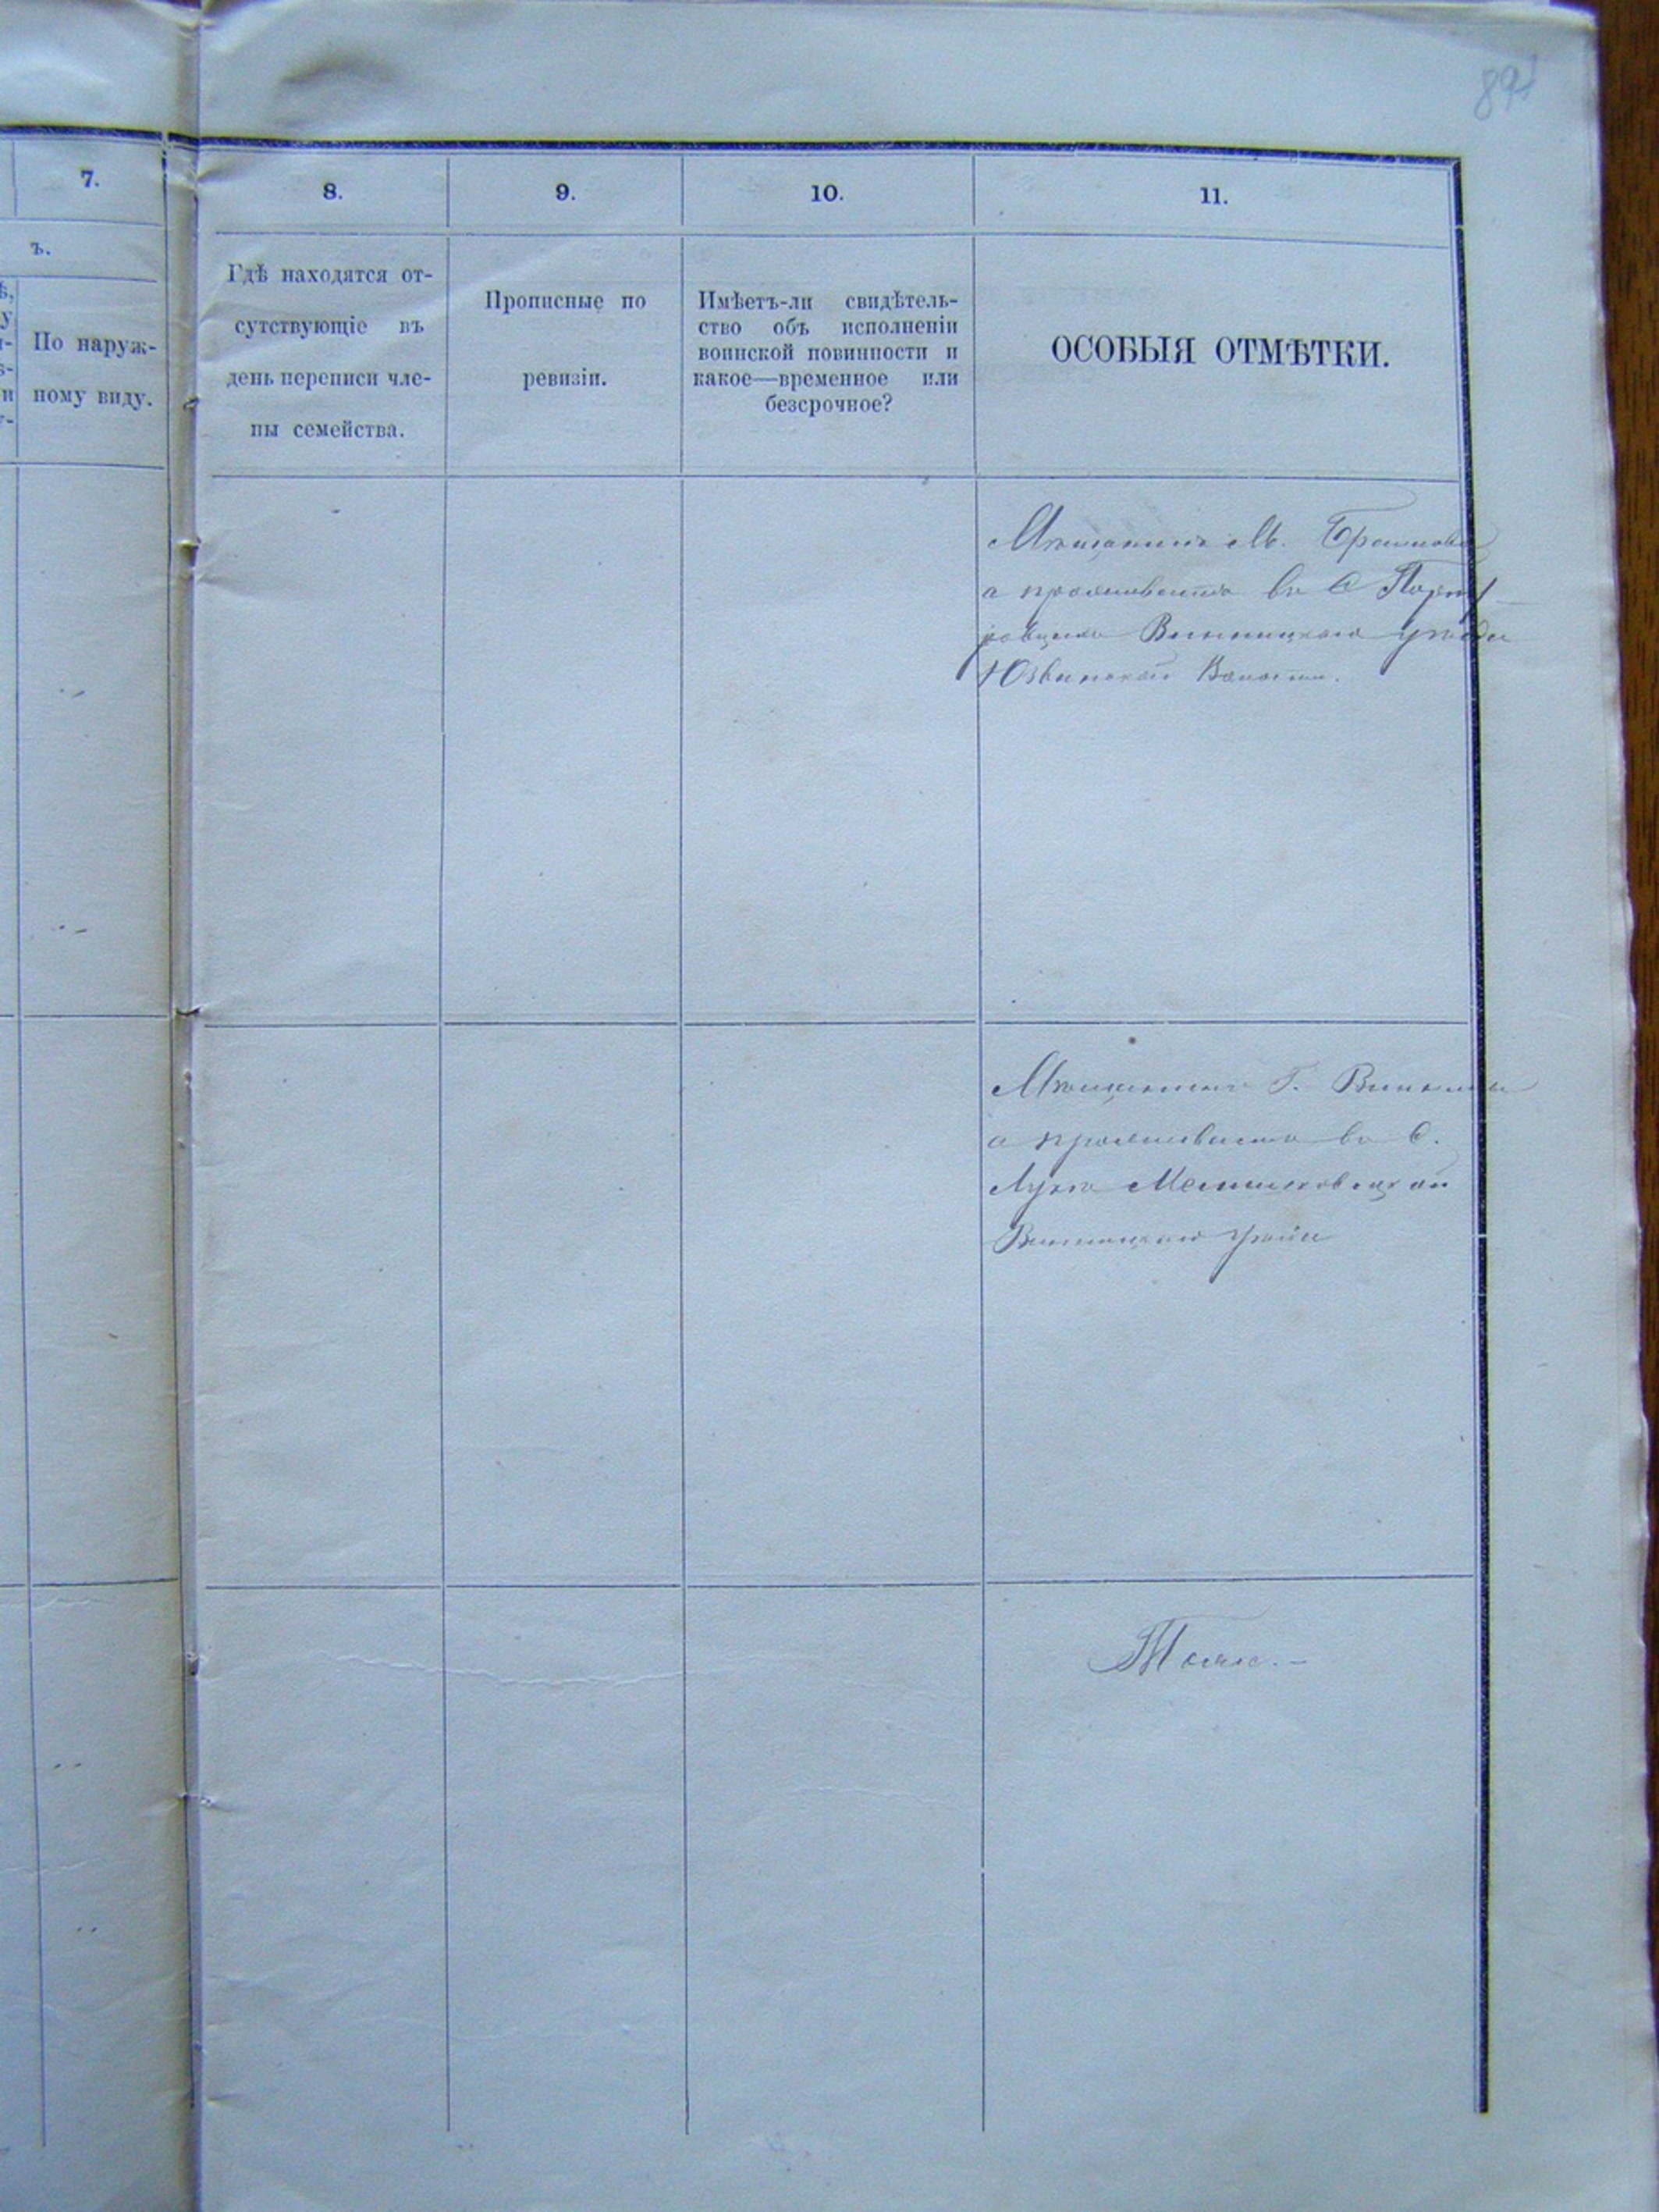 897
7.
8.
9.
10.
11.
ъ.
По наруж-
ному виду.
Гдѣ находятся от-
сутствующіе въ
день переписи чле-
ны семейства.
Прописные по
ревизіи.
Имѣетъ-ли свидѣтель-
ство объ исполненіи
воинской повинности и
какое—временное или
безсрочное?
ОСОБЫЯ ОТМѢТКИ.
Мѣщанинъ М. Браилова
а проживаетъ въ С
Винницкаго уѣзда
Юзвинской Волости.
Мѣщанинъ Г. Винницы
а проживаетъ въ С.
Лукѣ Мешковской
Винницкаго уѣзда
Тоже.-